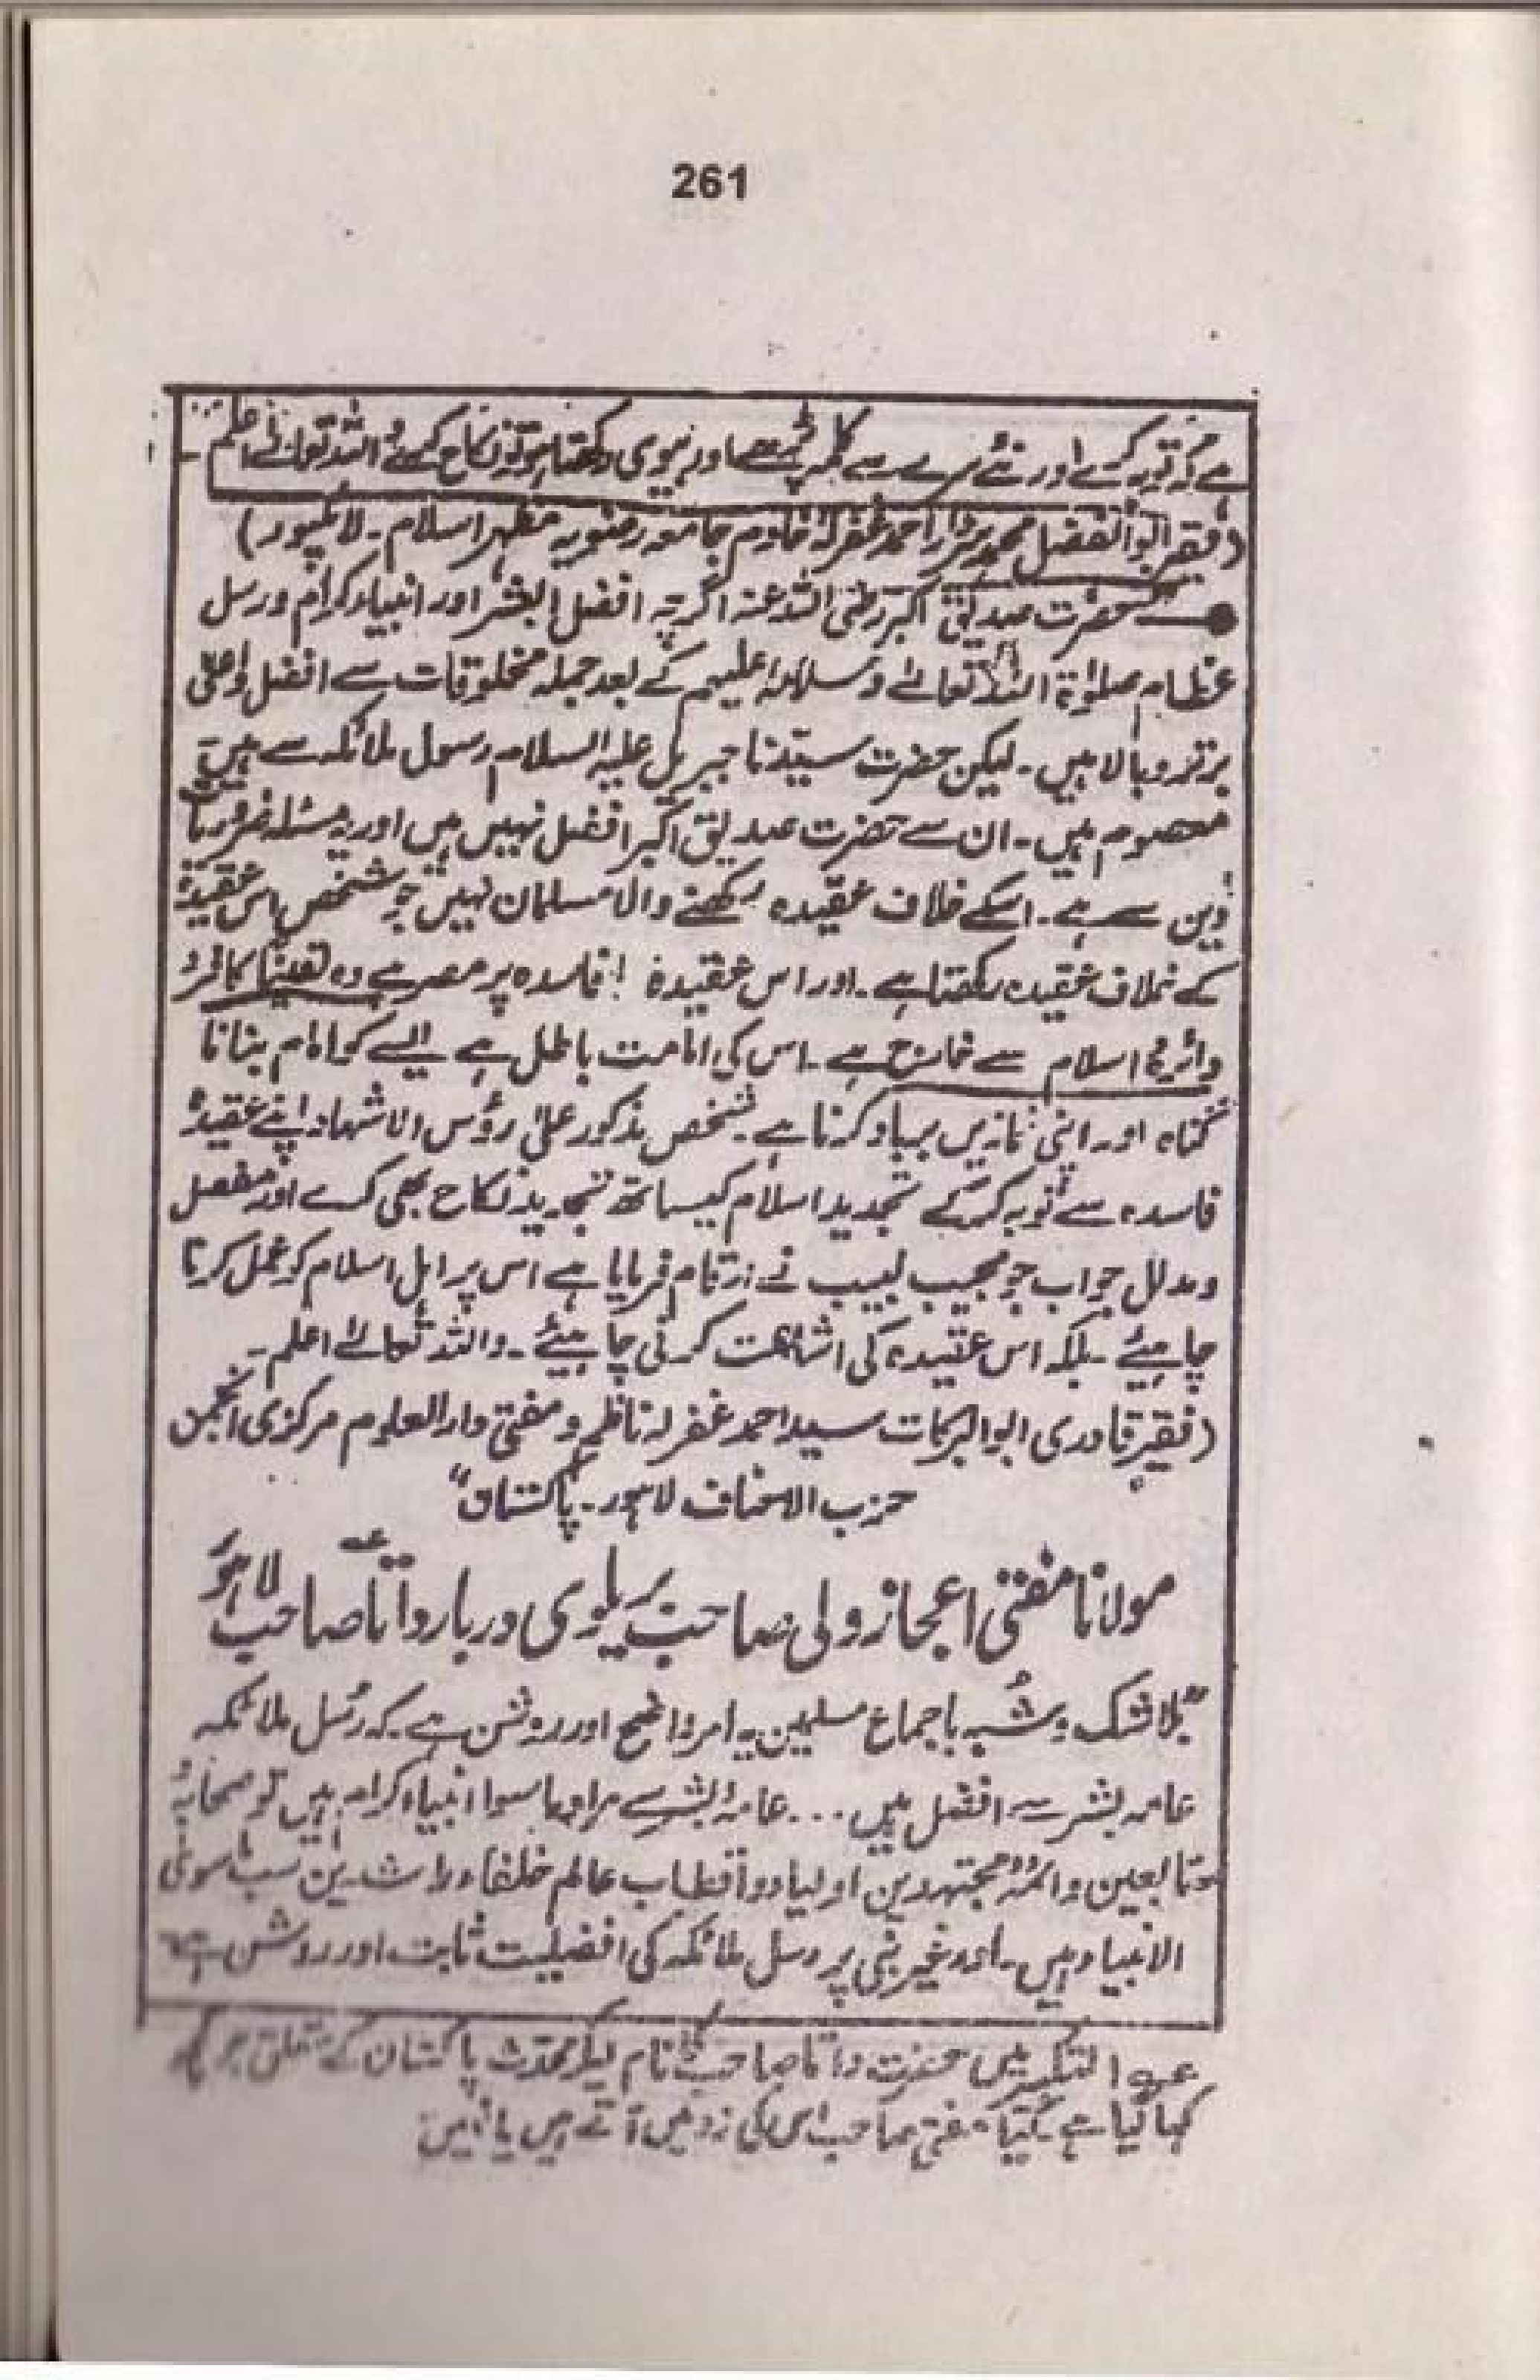 261
ہے کہ توبہ کرے اور نئے سرے سے کلمہ پڑھے اور بیوی رکھتا ہو تو نکاح کرے واللہ تعالےٰ اعلم۔
(فقیر ابوالفضل محمد سردار احمد غفرلہٗ خادم جامعہ رضویہ مظہر اسلام۔ لائلپور)
حضرت صدیق اکبر رضی اللہ عنہ اگرچہ افضل البشر اور انبیاء کرام و رسل
عظام صلوٰۃ اللہ تعالےٰ وسلامہٗ علیہم کے بعد جملہ مخلوقات سے افضل و اعلیٰ
برتر و بالا ہیں۔ لیکن حضرت سیّدنا جبریل علیہ السلام رسول ملائکہ سے ہیں
معصوم ہیں۔ ان سے حضرت صدیق اکبر افضل نہیں ہیں اور یہ مسئلہ ضروریات
دین سے ہے۔ اسکے خلاف عقیدہ رکھنے والا مسلمان نہیں جو شخص اس عقیدہ
کے خلاف عقیدہ رکھتا ہے۔ اور اس عقیدۂ فاسدہ پر مصر ہے وہ یقیناً کافر و
دائرۂ اسلام سے خارج ہے۔ اس کی امامت باطل ہے ایسے کو امام بنانا
گناہ اور اپنی نمازیں برباد کرنا ہے۔ شخص مذکور علیٰ رؤس الاشہاد اپنے عقیدۂ
فاسدہ سے توبہ کرکے تجدید اسلام کیساتھ تجدید نکاح بھی کرے اور مفصل
ومدلل جواب جو مجیب لبیب نے ارقام فرمایا ہے اس پر اہل اسلام کو عمل کرنا
چاہیئے۔ بلکہ اس عقیدہ کی اشاعت کرنی چاہیئے۔ واللہ تعالےٰ اعلم۔
(فقیر قادری ابوالبرکات سید احمد غفرلہ ناظم و مفتی دارالعلوم مرکزی انجمن
حزب الاحناف لاہور۔ پاکستان"
مولانا مفتی اعجاز ولی صاحب بریلوی دربار داتا صاحب لاہور
"بلا شک و شُبہ باجماع مسلمین یہ امر واضح اور روشن ہے۔ کہ رُسل ملائکہ
عامہ بشر سے افضل ہیں ... عامۂ بشر سے مراد ماسوا انبیاء کرام ہیں تو صحابہ
وتابعین وائمۂ مجتہدین اولیاء و اقطاب عالم خلفاء راشدین سب سوئی
الانبیاء ہیں۔ اور غیر نبی پر رسل ملائکہ کی افضلیت ثابت اور روشن ہے"
عہ التکبیر میں حضرت داتا صاحب کا نام لیکر محدّث پاکستان کے متعلق جو کچھ
کہا گیا ہے۔ کیا مفتی صاحب اس کی زد میں آتے ہیں یا نہیں